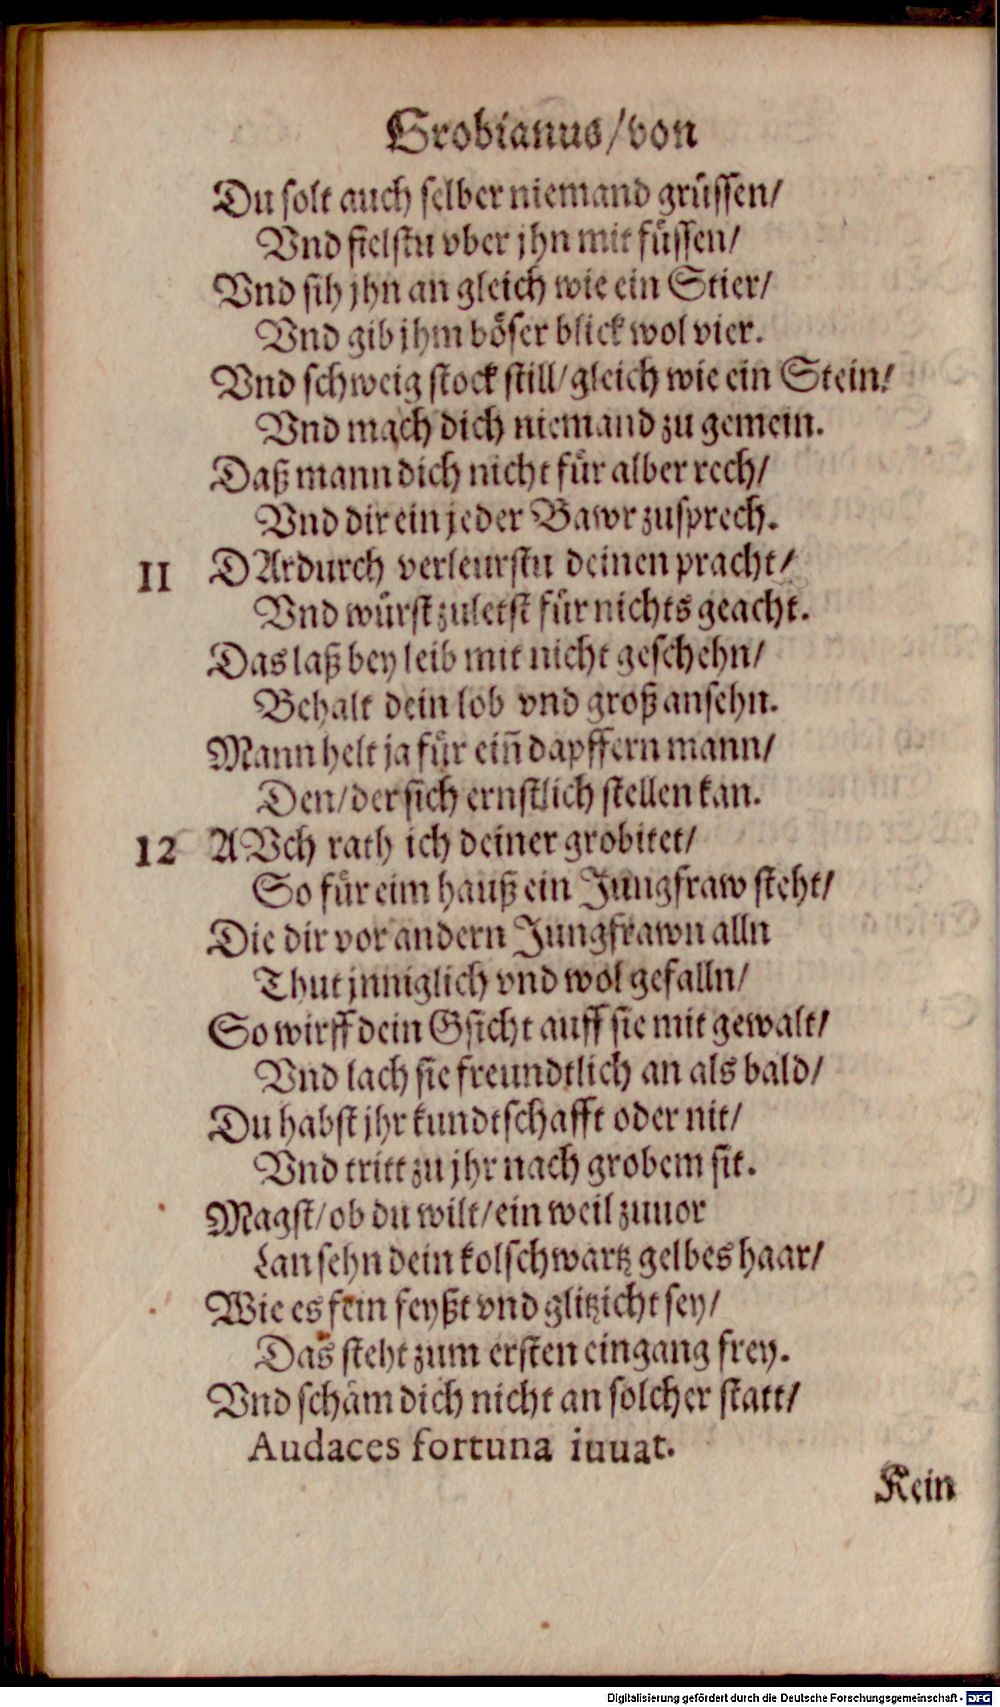 Grobianus/von
Du solt auch selber niemand grüssen/
Vnd fielstu vber jhn mit füssen/
Vnd sih jhn an gleich wie ein Stier/
Vnd gib jhm böser blick wol vier.
Vnd schweig stock still/gleich wie ein Stein/
Vnd mach dich niemand zu gemein.
Daß mann dich nicht für alber rech/
Vnd dir ein jeder Bawr zusprech.
11 DArdurch verleurstu deinen pracht/
Vnd würst zuletst für nichts geacht.
Das laß bey leib mit nicht geschehn/
Behalt dein lob vnd groß ansehn.
Mann helt ja für eiñ dapffern mann/
Den/der sich ernstlich stellen kan.
12 AVch rath ich deiner grobitet/
So für eim hauß ein Jungfraw steht/
Die dir vor andern Jungfrawn alln
Thut jnniglich vnd wol gefalln/
So wirff dein Gsicht auff sie mit gewalt/
Vnd lach sie freundtlich an als bald/
Du habst jhr kundtschafft oder nit/
Vnd tritt zu jhr nach grobem sit.
Magst/ob du wilt/ein weil zuuor
Lan sehn dein kolschwartz gelbes haar/
Wie es fein feyßt vnd glitzicht sey/
Das steht zum ersten eingang frey.
Vnd schäm dich nicht an solcher statt/
Audaces fortuna iuuat.
Kein
Digitalisierung gefördert durch die Deutsche Forschungsgemeinschaft - DFG